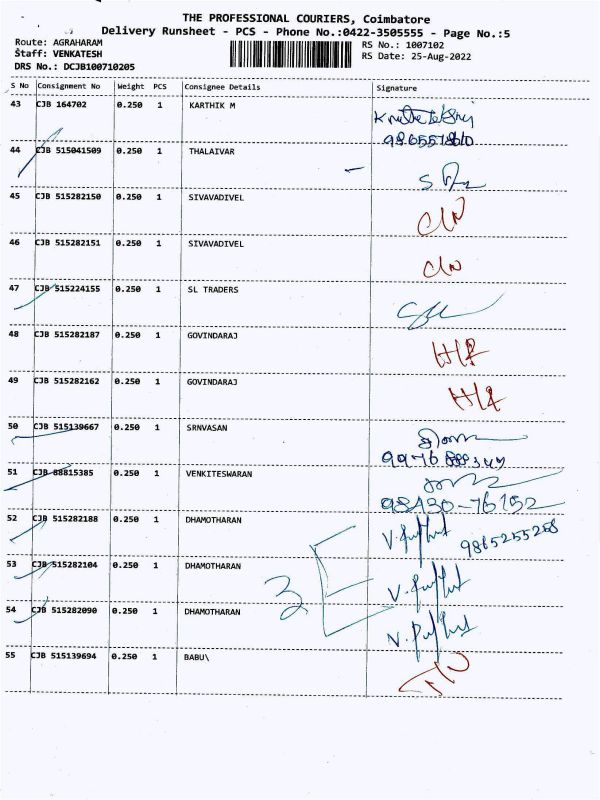 THE PROFESSIONAL COURIERS, Coimbatore
Delivery Runsheet - PCS - Phone No.:0422-3505555 - Page No.:5
Route: AGRAHARAM
Staff: VENKATESH
DRS No.: DCJB100710205
RS No.: 1007102
RS Date: 25-Aug-2022
S No Consignment No Weight PCS Consignee Details Signature
43 CJB 164702 0.250 1 KARTHIK M
44 CJB 515041509 0.250 1 THALAIVAR
45 CJB 515282150 0.250 1 SIVAVADIVEL C/N
46 CJB 515282151 0.250 1 SIVAVADIVEL C/N
47 CJB 515224155 0.250 1 SL TRADERS
48 CJB 515282187 0.250 1 GOVINDARAJ
49 CJB 515282162 0.250 1 GOVINDARAJ
50 CJB 515139667 0.250 1 SRNVASAN
51 CJB 88815385 0.250 1 VENKITESWARAN
98430-76152
52 CJB 515282188 0.250 1 DHAMOTHARAN
9865255258
53 CJB 515282104 0.250 1 DHAMOTHARAN
3
54 CJB 515282090 0.250 1 DHAMOTHARAN
55 CJB 515139694 0.250 1 BABU\